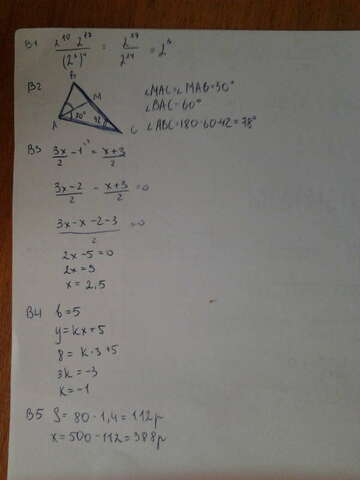 B1 2^10 · 2^17 / (2^6)^4 = 2^27 / 2^24 = 2^3
B2 B
M
A 30° 42 C
∠MAC = ∠MAB = 30°
∠BAC = 60°
∠ABC = 180-60-42 = 78°
B3 3x/2 - 1 = x+3/2
3x-2/2 - x+3/2 = 0
3x-x-2-3/2 = 0
2x-5 = 0
2x = 5
x = 2,5
B4 b = 5
y = kx+5
8 = k·3+5
3k = -3
k = -1
B5 S = 80·1,4 = 112р
x = 500-112 = 388р